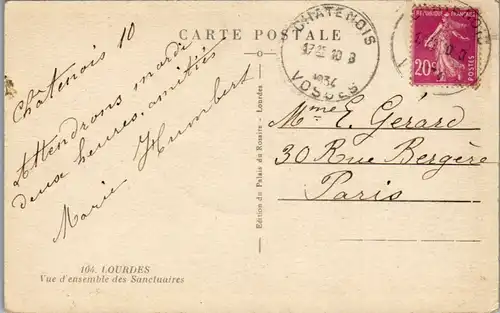 CARTE POSTALE
Chatenois 10
Attendrons mardi
deux heures, amitiés
Marie Humbert
104. LOURDES
Vue d'ensemble des Sanctuaires
Edition du Palais du Rosaire - Lourdes
CHATENOIS
1934
VOSGES
REPUBLIQUE FRANÇAISE
20c
POSTES
Mme E. Gérard
30 Rue Bergère
Paris